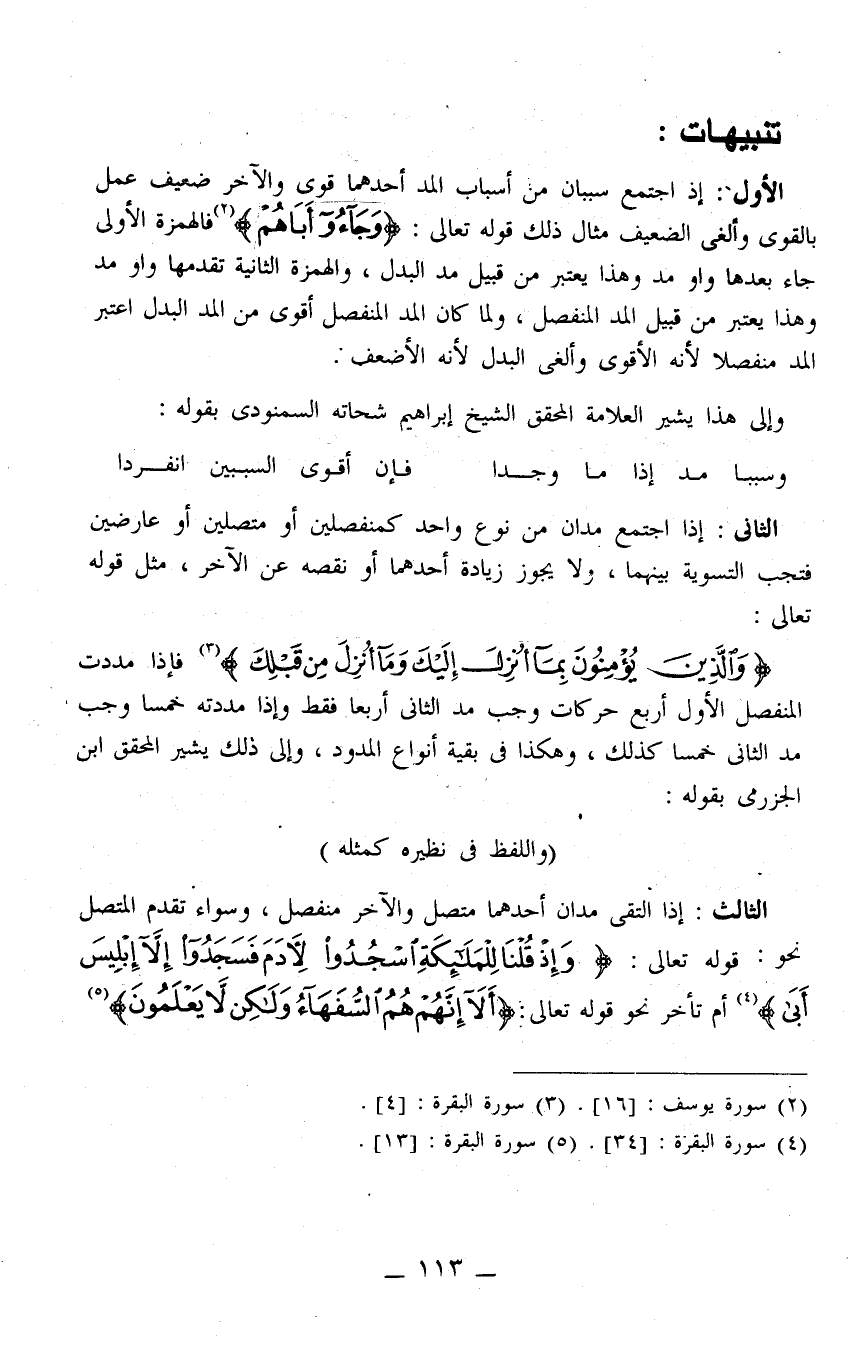 تنبيهات :
الأول : إذ اجتمع سببان من أسباب المد أحدهما قوى والآخر ضعيف عمل
بالقوى وألغى الضعيف مثال ذلك قوله تعالى : ﴿وَجَآءُوٓ أَبَاهُمْ﴾(٢) فالهمزة الأولى
جاء بعدها واو مد وهذا يعتبر من قبيل مد البدل ، والهمزة الثانية تقدمها واو مد
وهذا يعتبر من قبيل المد المنفصل ، ولما كان المد المنفصل أقوى من المد البدل اعتبر
المد منفصلا لأنه الأقوى وألغى البدل لأنه الأضعف .
وإلى هذا يشير العلامة المحقق الشيخ إبراهيم شحاته السمنودى بقوله :
وسببا مـد إذا ما وجـــدا فـإن أقـوى السببين انفـــردا
الثانى : إذا اجتمع مدان من نوع واحد كمنفصلين أو متصلين أو عارضين
فتجب التسوية بينهما ، ولا يجوز زيادة أحدهما أو نقصه عن الآخر ، مثل قوله
تعالى :
﴿ وَٱلَّذِينَ يُؤْمِنُونَ بِمَآ أُنزِلَ إِلَيْكَ وَمَآ أُنزِلَ مِن قَبْلِكَ ﴾(٣) فإذا مددت
المنفصل الأول أربع حركات وجب مد الثانى أربعا فقط وإذا مددته خمسا وجب
مد الثانى خمسا كذلك ، وهكذا فى بقية أنواع المدود ، وإلى ذلك يشير المحقق ابن
الجزرى بقوله :
(واللفظ فى نظيره كمثله )
الثالث : إذا التقى مدان أحدهما متصل والآخر منفصل ، وسواء تقدم المتصل
نحو : قوله تعالى : ﴿ وَإِذْ قُلْنَا لِلْمَلَٰٓئِكَةِ ٱسْجُدُوا۟ لِأٓدَمَ فَسَجَدُوٓا۟ إِلَّآ إِبْلِيسَ
أَبَىٰ ﴾(٤) أم تأخر نحو قوله تعالى : ﴿أَلَآ إِنَّهُمْ هُمُ ٱلسُّفَهَآءُ وَلَٰكِن لَّا يَعْلَمُونَ﴾(٥)
(٢) سورة يوسف : [١٦] . (٣) سورة البقرة : [٤] .
(٤) سورة البقرة : [٣٤] . (٥) سورة البقرة : [١٣] .
ــ ١١٣ ــ